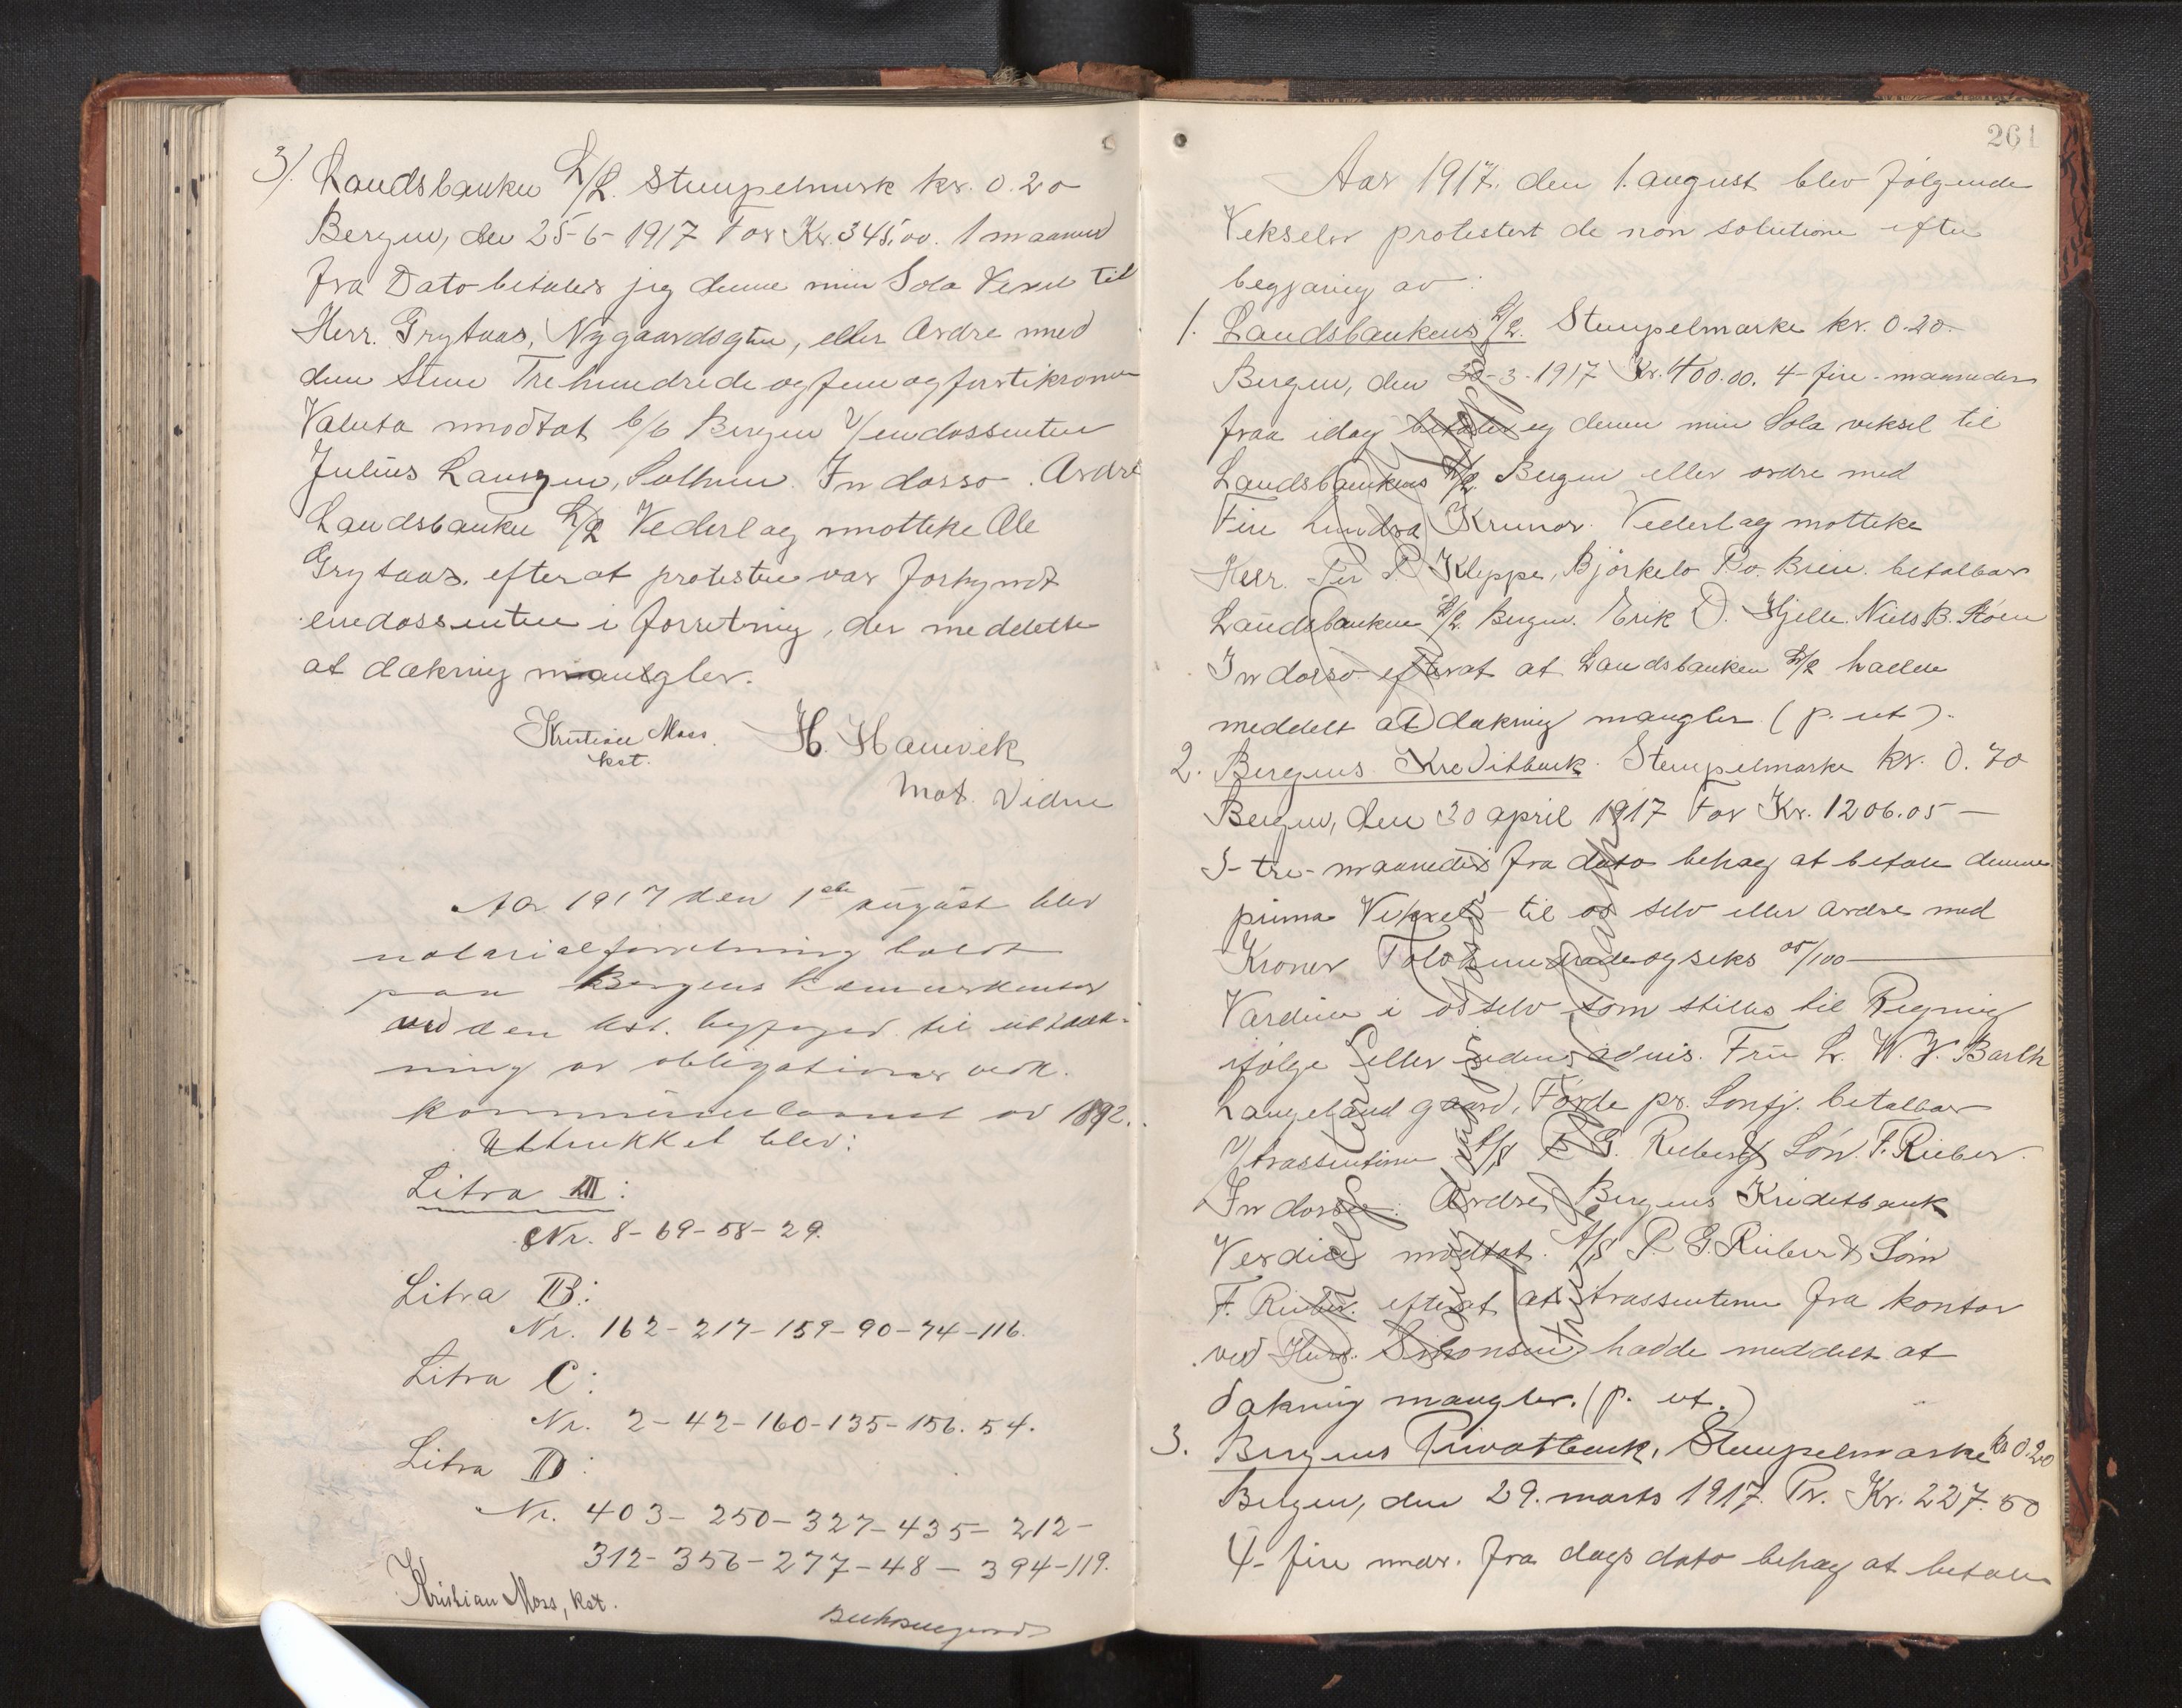 3). Landsbanken L/L. Stempelmerk kr. 0.20
Bergen, den 25-6-1917 For Kr. 345,00. 1 maaned
fra Dato betaler jeg denne min Sola Vexel til
Herr. Grytaas, Nygaardsgten, eller Ordre med
den Sum Trehundrede og fem og førtikroner
Valuta modtat b/b Bergen v/endossenten
Julius Laurgen, Indosso. Ordre
Landsbanken L/L Vederlag motteke Ole
Grytaas. efterat protesten var forkyndt
endossenten i forretning, der meddelte
at dækning mangler.
Kristian Moss. H. Hamvik
kst. Not. Vidne
Aar 1917 den 1ste august blev
notarialforretning holdt
paa Bergens Kæmnerkontor
ved den kst. byfoged til uttræk-
ning av obligationer vedk.
kommunelaanet av 1892.
Uttrukket blev:
Litra A:
Nr. 8-69-58-29.
Litra B:
Nr. 162-217-159-90-74-116.
Litra C:
Nr. 2-42-160-135-156. 54.
Litra D:
Nr. 403-250-327-435-212-
312-356-277-48-394-119.
Kristian Moss, kst.
261
Aar 1917. den 1. august blev følgende
Veksler protestert de non solutione efter
begjæring av:
1. Landsbankens L/L. Stempelmerke kr. 0.20.
Bergen, den 30-3-1917 Kr. 400.00. 4-fire-maaneder
fraa idag betaler eg denne min Sola veksel til
Landsbankens L/L. Bergen eller ordre med
Fire hundra Krunor. Vederlag motteke
Herr. Per P. Kleppe, Bjørkelo P.o. Breim. betalbar
Landsbanken L/L. Bergen. Erik D. Hjelle. Niels B. Støen
Indosso efterat at Landsbanken L/L hadde
meddelt at dækning mangler (p. ut).
2. Bergens Kreditbank. Stempelmerke kr. 0.70
Bergen, den 30 april 1917 For Kr. 1206.05 —
3-tre-maaneder fra dato behag at betale denne
prima Veksel til os selv eller ordre med
Kroner Tolvhundrede og seks 05/100
Værdien i os selv som stilles til Regning
ifølge eller uden advis. Fru L. W. V. Barth
Langeland gaard, Førde pr. Sonfj. betalbar
v/trassentinne A/S P. G. Rieber & Søn. F. Rieber.
Indosso: Ordre Bergens Kreditbank
Verdien modtat. A/S P. G. Rieber & Søn
F. Rieber. efterat at trassentinne fra kontor
ved Herr. Simonsen hadde meddelt at
dækning mangler. (p. ut.)
3. Bergens Privatbank, Stempelmerke kr 0.20
Bergen, den 29. marts 1917. Pr. Kr. 227.50
4-fire mndr. fra dags dato behag at betale